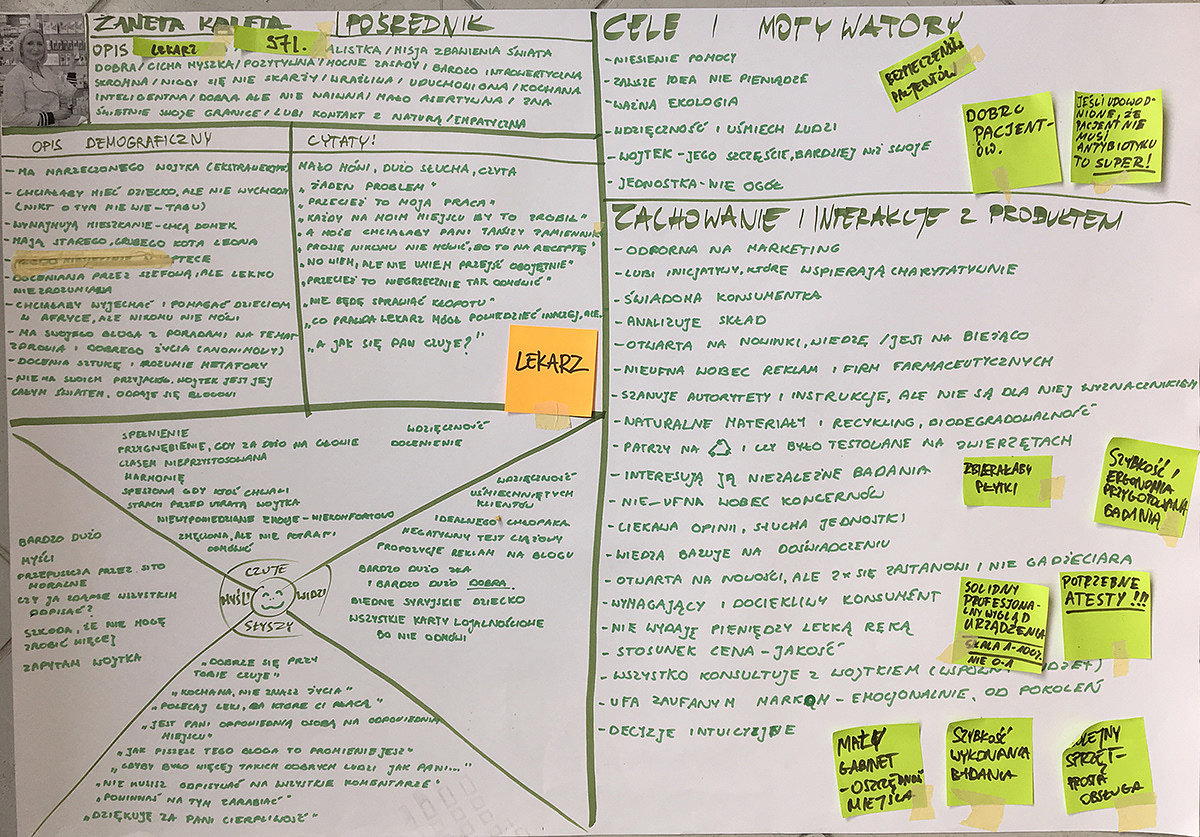 ŻANETA KALETA
POŚREDNIK
OPIS LEKARZ 57l. ALISTKA / MISJA ZBAWIENIA ŚWIATA
DOBRA / CICHA MYSZKA / POZYTYWNA / MOCNE ZASADY / BARDZO INTROWERTYCZNA
SKROMNA / NIGDY SIĘ NIE SKARŻY / WRAŻLIWA / UDUCHOWIONA / KOCHANA
INTELIGENTNA / DOBRA ALE NIE NAIWNA / MAŁO ASERTYWNA / ZNA
ŚWIETNIE SWOJE GRANICE / LUBI KONTAKT Z NATURĄ / EMPATYCZNA
OPIS DEMOGRAFICZNY
- MA NARZECZONEGO WOJTKA (EKSTRAWERTYK)
- CHCIAŁABY MIEĆ DZIECKO, ALE NIE WYCHODZI
(NIKT O TYM NIE WIE - TABU)
- WYNAJMUJĄ MIESZKANIE - CHCĄ DOMEK
- MAJĄ STAREGO, GRUBEGO KOTA LEONA
TECE
DOCENIANA PRZEZ SZEFOWĄ, ALE LEKKO
NIEZROZUMIANA
- CHCIAŁABY WYJECHAĆ I POMAGAĆ DZIECIOM
W AFRYCE, ALE NIKOMU NIE MÓWI
- MA SWOJEGO BLOGA Z PORADAMI NA TEMAT
ZDROWIA I DOBREGO ŻYCIA (ANONIMOWY)
- DOCENIA SZTUKĘ I ROZUMIE METAFORY
- NIE MA SWOICH PRZYJACIÓŁ, WOJTEK JEST JEJ
CAŁYM ŚWIATEM, ODDAJE SIĘ BLOGOWI
CYTATY!
MAŁO MÓWI, DUŻO SŁUCHA, CZYTA
„ŻADEN PROBLEM"
„PRZECIEŻ TO MOJA PRACA"
„KAŻDY NA MOIM MIEJSCU BY TO ZROBIŁ"
„A MOŻE CHCIAŁABY PANI TAŃSZY ZAMIENNIK"
„PROSZĘ NIKOMU NIE MÓWIĆ, BO TO NA RECEPTĘ"
„NO WIEM, ALE NIE UMIEM PRZEJŚĆ OBOJĘTNIE"
„PRZECIEŻ TO NIEGRZECZNIE TAK ODMÓWIĆ"
„NIE BĘDĘ SPRAWIAĆ KŁOPOTU"
„CO PRAWDA LEKARZ MÓGŁ POWIEDZIEĆ INACZEJ, ALE..
„A JAK SIĘ PAN CZUJE?"
LEKARZ
SPEŁNIENIE
PRZYGNĘBIENIE, GDY ZA DUŻO NA GŁOWIE
CZASEM NIEPRZYSTOSOWANA
HARMONIĘ
SPESZONA GDY KTOŚ CHWALI
STRACH PRZED UTRATĄ WOJTKA
NIEWYPOWIEDZIANE EMOCJE - NIEKOMFORTOWO
ZMĘCZONA, ALE NIE POTRAFI
ODMÓWIĆ
WDZIĘCZNOŚĆ
DOCENIENIE
BARDZO DUŻO
MYŚLI
PRZEPUSZCZA PRZEZ SITO
MORALNE
CZY JA ZDĄŻĘ WSZYSTKIM
ODPISAĆ?
SZKODA, ŻE NIE MOGĘ
ZROBIĆ WIĘCEJ
ZAPYTAM WOJTKA
CZUJE
MYŚLI
WIDZI
SŁYSZY
WDZIĘCZNOŚĆ
UŚMIECHNIĘTYCH
KLIENTÓW
IDEALNEGO CHŁOPAKA
NEGATYWNY TEST CIĄŻOWY
PROPOZYCJE REKLAM NA BLOGU
BARDZO DUŻO ZŁA
I BARDZO DUŻO DOBRA
BIEDNE SYRYJSKIE DZIECKO
WSZYSTKIE KARTY LOJALNOŚCIOWE
BO NIE ODMÓWI
„DOBRZE SIĘ PRZY
TOBIE CZUJĘ"
„KOCHANA, NIE ZNASZ ŻYCIA"
„POLECAJ LEKI, ZA KTÓRE CI PŁACĄ"
„JEST PANI ODPOWIEDNIĄ OSOBĄ NA ODPOWIEDNIM
MIEJSCU"
„JAK PISZESZ TEGO BLOGA TO PROMIENIEJESZ"
„GDYBY BYŁO WIĘCEJ TAKICH DOBRYCH LUDZI JAK PANI..."
„NIE MUSISZ ODPISYWAĆ NA WSZYSTKIE KOMENTARZE"
„POWINNAŚ NA TYM ZARABIAĆ"
„DZIĘKUJĘ ZA PANI CIERPLIWOŚĆ"
CELE I MOTYWATORY
- NIESIENIE POMOCY
- ZAWSZE IDEA NIE PIENIĄDZE
- WAŻNA EKOLOGIA
- WDZIĘCZNOŚĆ I UŚMIECH LUDZI
- WOJTEK - JEGO SZCZĘŚCIE, BARDZIEJ NIŻ SWOJE
- JEDNOSTKA - NIE OGÓŁ
BEZPIECZEŃSTWO
PACJENTÓW
DOBRO
PACJENT-
ÓW.
JEŚLI UDOWOD-
NIONE, ŻE
PACJENT NIE
MUSI
ANTYBIOTYKU
TO SUPER!
ZACHOWANIE I INTERAKCJE Z PRODUKTEM
- ODPORNA NA MARKETING
- LUBI INICJATYWY, KTÓRE WSPIERAJĄ CHARYTATYWNIE
- ŚWIADOMA KONSUMENTKA
- ANALIZUJE SKŁAD
- OTWARTA NA NOWINKI, WIEDZĘ / JEST NA BIEŻĄCO
- NIEUFNA WOBEC REKLAM I FIRM FARMACEUTYCZNYCH
- SZANUJE AUTORYTETY I INSTRUKCJE, ALE NIE SĄ DLA NIEJ WYZNACZNIKIEM
- NATURALNE MATERIAŁY I RECYKLING, BIODEGRADOWALNOŚĆ
- PATRZY NA ♺ I CZY BYŁO TESTOWANE NA ZWIERZĘTACH
- INTERESUJĄ JĄ NIEZALEŻNE BADANIA
- NIE_UFNA WOBEC KONCERNÓW
- CIEKAWA OPINII, SŁUCHA JEDNOSTKI
- WIEDZA BAZUJE NA DOŚWIADCZENIU
- OTWARTA NA NOWOŚCI, ALE 2x SIĘ ZASTANOWI I NIE GADŻECIARA
- WYMAGAJĄCY I DOCIEKLIWY KONSUMENT
- NIE WYDAJE PIENIĘDZY LEKKĄ RĘKĄ
- STOSUNEK CENA - JAKOŚĆ
- WSZYSTKO KONSULTUJE Z WOJTKIEM (WSPÓLN DŻET)
- UFA ZAUFANYM MARKOM - EMOCJONALNIE, OD POKOLEŃ
- DECYZJE INTUICYJNE
ZBIERAŁABY
PŁYTKI
SZYBKOŚĆ I
ERGONOMIA
PRZYGOTOWANIA
BADANIA
SOLIDNY
PROFESJONA-
LNY WYGLĄD
URZĄDZENIA
SKALA 1-100%
NIE 0-1
POTRZEBNE
ATESTY!!!
MAŁY
GABINET
- OSZCZĘDNOŚĆ
MIEJSCA
SZYBKOŚĆ
WYKONANIA
BADANIA
KOLEJNY
SPRZĘT -
PROSTA
OBSŁUGA